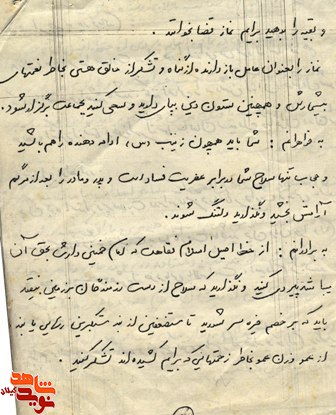 و بقیه را بدهید برایم نماز قضا بخوانند.
نماز را بعنوان عامل بازدارنده از گناه و تشکر از خالق هستی بخاطر نعمتهای
بیشمارش و همچنین ستون دین بپا دارید و سعی کنید بجماعت برگزار شود.
به خواهرانم : شما باید همچون زینب (س)، ادامه دهنده راهم باشید
و حجاب تنها سلاح شما در برابر عفریت فساد است و پدر و مادر را بعد از مرگم
آرامش بخشید و نگذارید دلتنگ شوند.
به برادرانم : از خط اصیل اسلام فقاهت که امام خمینی وارث بحق آن
میباشد پیروی کنید و نگذارید که سلاح از دست رزمندگان بر زمین بیفتد
باید که بر خصم خیره سر شورید تا مستضعفین از بند مستکبرین رهایی یابند.
از عمو و زن عمو بخاطر زحمتهایی که برایم کشیده‌اند تشکر کنید.
نوید شاهد
گیلان